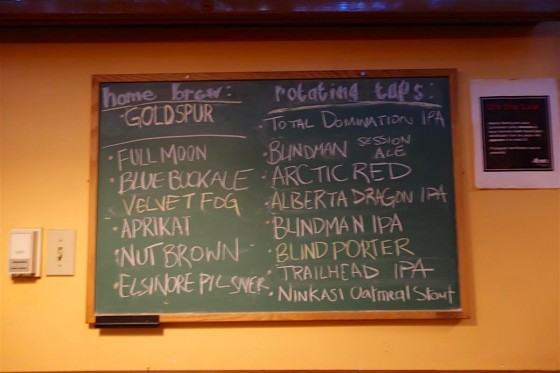 home brew:
· GOLDSPUR
· FULL MOON
· BLUE BUCK ALE
VELVET FOG
· APRIKAT
· NUT BROWN
· ELSINORE PILSNER
rotating taps:
· TOTAL DOMINATION IPA
· BLINDMAN SESSION ALE
· ARCTIC RED
· ALBERTA DRAGON IPA
· BLINDMAN IPA
· BLIND PORTER
· TRAILHEAD IPA
· NINKASI Oatmeal Stout
It's the Law